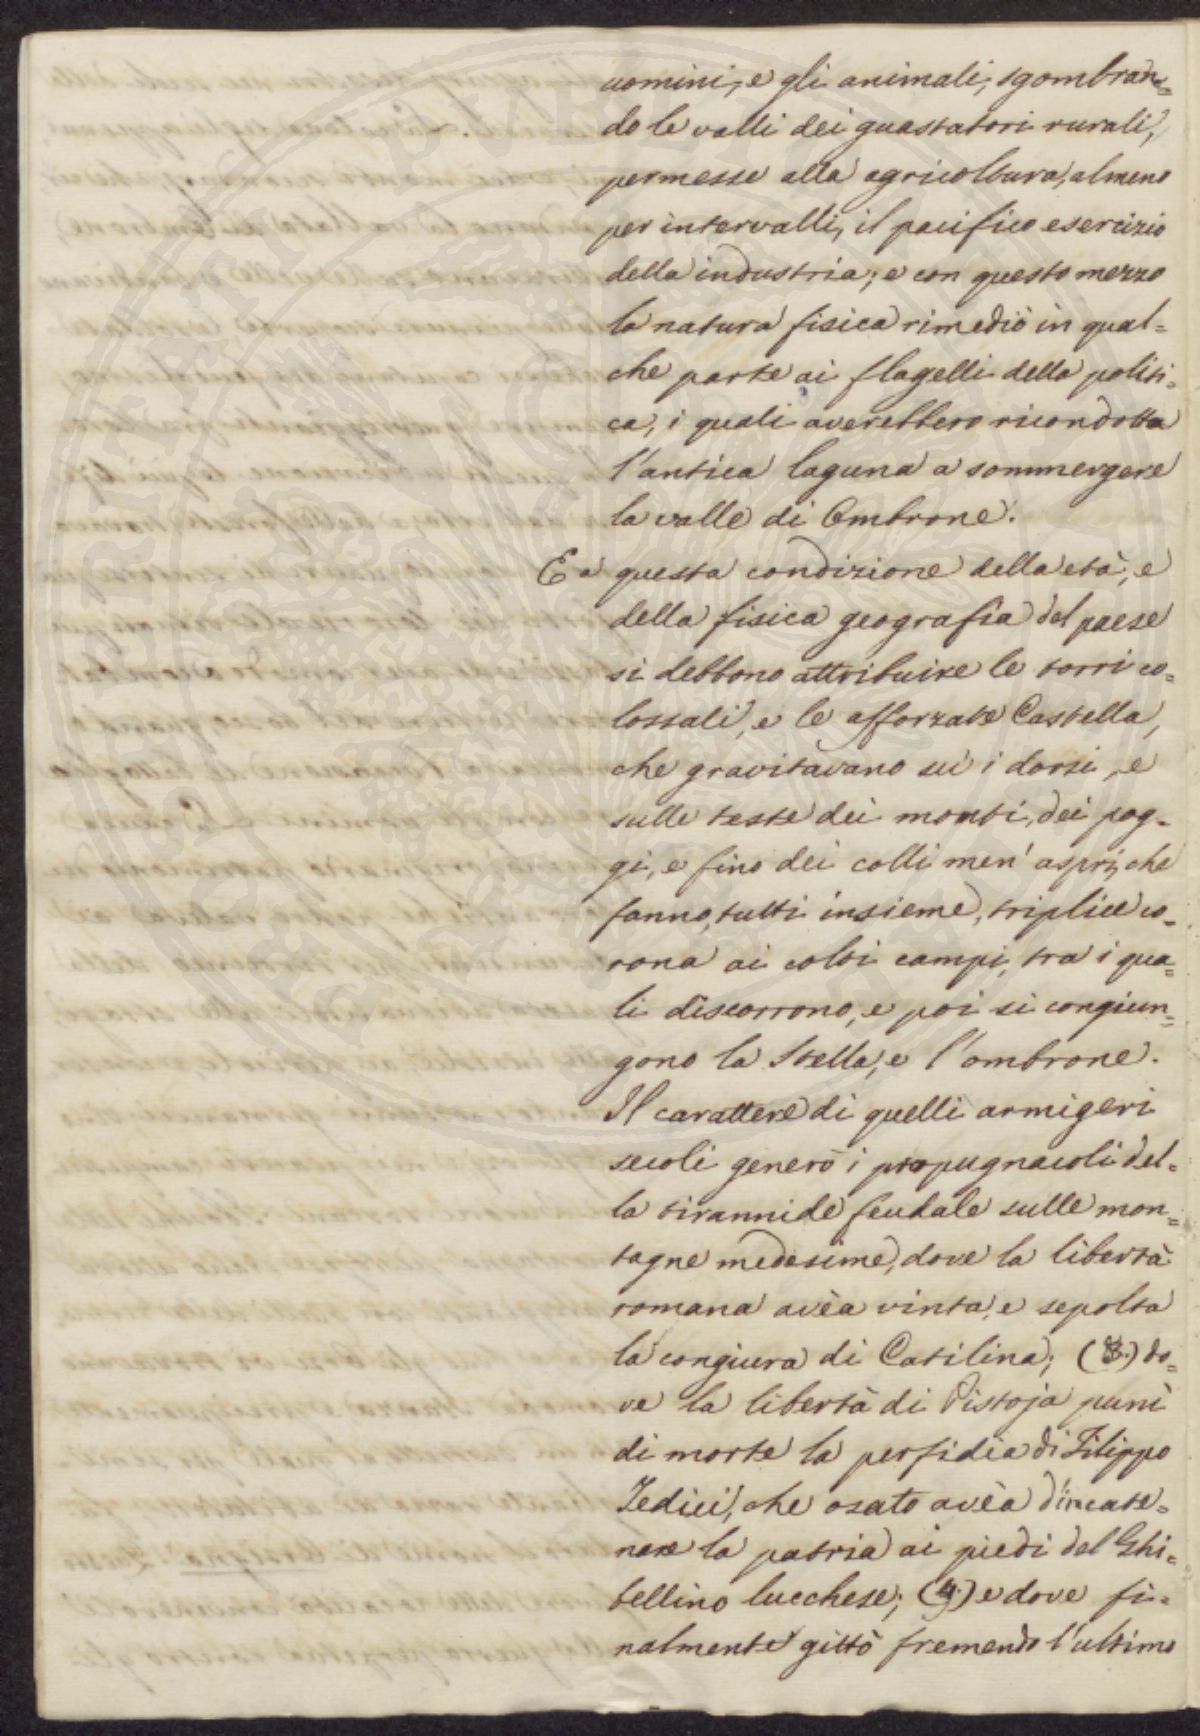 uomini, e gli animali, sgombran=
do le valli dei guastatori rurali,
permesse alla agricoltura, almeno
per intervalli, il pacifico esercizio
della industria; e con questo mezzo
la natura fisica rimediò in qual=
che parte ai flagelli della politi=
ca, i quali averebbero ricondotta
l'antica laguna a sommergere
la valle di Ombrone.
E a questa condizione della età, e
della fisica geografia del paese
si debbono attribuire le torri co=
lossali, e le afforzate Castella,
che gravitavano su i dorsi, e
sulle teste dei monti, dei pog=
gi, e fino dei colli men' aspri, che
fanno, tutti insieme, triplice co=
rona ai colti campi, tra i qua=
li discorrono, e poi si congiun=
gono la Stella, e l'ombrone.
Il carattere di quelli armigeri
secoli generò i propugnacoli del=
la tirannide feudale sulle mon=
tagne medesime, dove la libertà
romana avèa vinta, e sepolta
la congiura di Catilina; (3.) do=
ve la libertà di Pistoja punì
di morte la perfidia di Filippo
Tedici, che osato avèa d'incate=
nare la patria ai piedi del Ghi=
bellino lucchese; (4.) e dove fi=
nalmente gittò fremendo l'ultimo